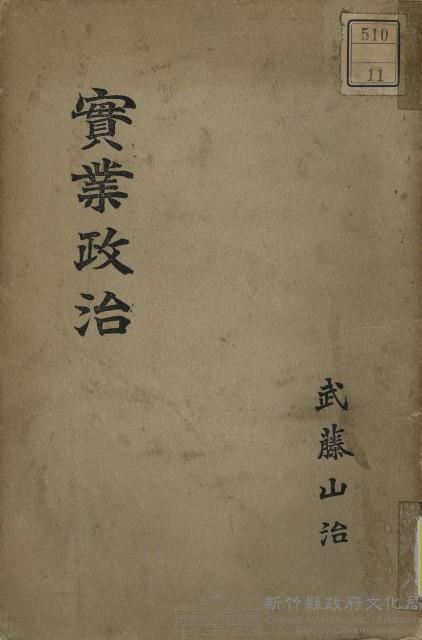 510
11
實業政治
武藤山治
新竹縣政府文化局
Cultural Affairs Bureau of Hsinchu
County Government